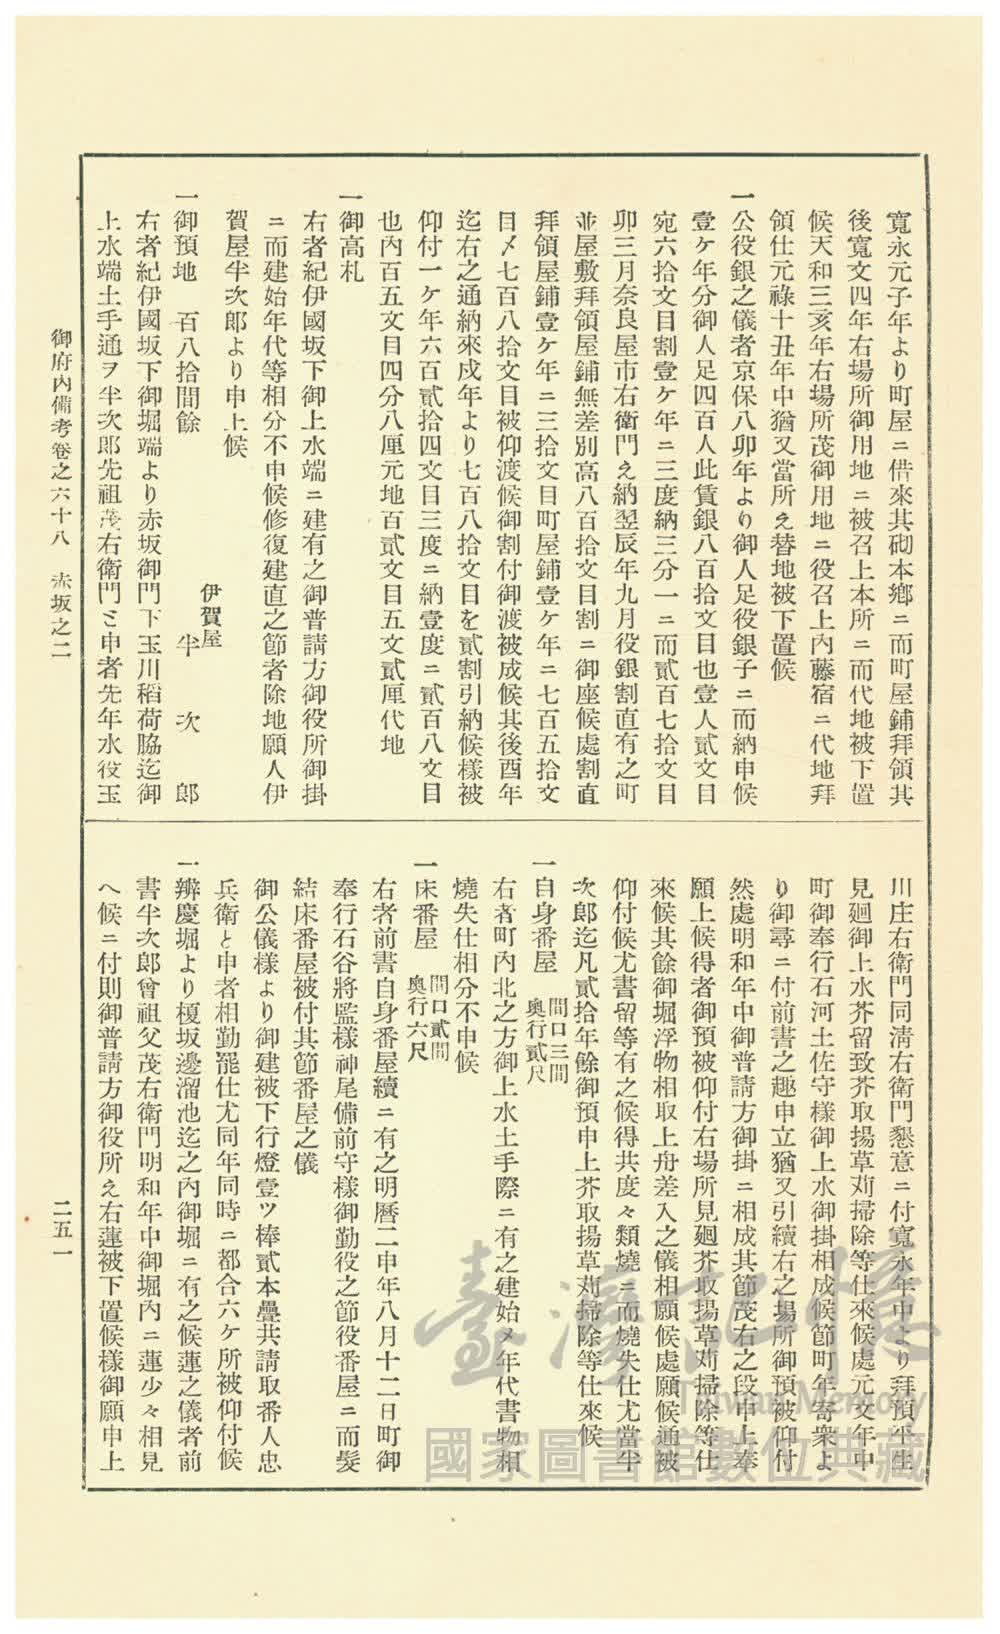 寬永元子年より町屋ニ借來其砌本鄕ニ而町屋鋪拜領其
後寬文四年右場所御用地ニ被召上本所ニ而代地被下置
候天和三亥年右場所茂御用地ニ役召上內藤宿ニ代地拜
領仕元祿十丑年中猶又當所え替地被下置候
一公役銀之儀者京保八卯年より御人足役銀子ニ而納申候
壹ケ年分御人足四百人此賃銀八百拾文目也壹人貳文目
宛六拾文目割壹ケ年ニ三度納三分一ニ而貳百七拾文目
卯三月奈良屋市右衞門え納翌辰年九月役銀割直有之町
並屋敷拜領屋鋪無差別高八百拾文目割ニ御座候處割直
拜領屋鋪壹ケ年ニ三拾文目町屋鋪壹ケ年ニ七百五拾文
目〆七百八拾文目被仰渡候御割付御渡被成候其後酉年
迄右之通納來戍年より七百八拾文目を貳割引納候樣被
仰付一ケ年六百貳拾四文目三度ニ納壹度ニ貳百八文目
也內百五文目四分八厘元地百貳文目五文貳厘代地
一御高札
右者紀伊國坂下御上水端ニ建有之御普請方御役所御掛
ニ而建始年代等相分不申候修復建直之節者除地願人伊
賀屋半次郎より申上候
伊賀屋
半次郎
一御預地　百八拾間餘
右者紀伊國坂下御堀端より赤坂御門下玉川稻荷脇迄御
上水端土手通ヲ半次郎先祖茂右衞門と申者先年水役玉
川庄右衞門同淸右衞門懇意ニ付寬永年中より拜預年生
見廻御上水芥留致芥取揚草苅掃除等仕來候處元文年中
町御奉行石河土佐守樣御上水御掛相成候節町年寄衆よ
り御尋ニ付前書之趣申立猶又引續右之場所御預被仰付
然處明和年中御普請方御掛ニ相成其節茂右之段申上奉
願上候得者御預被仰付右場所見廻芥取揚草苅掃除等仕
來候其餘御堀浮物相取上舟差入之儀相願候處願候通被
仰付候尤書留等有之候得共度々類燒ニ而燒失仕尤當半
次郎迄凡貳拾年餘御預申上芥取揚草苅掃除等仕來候
一自身番屋　間口三間
奧行貳尺
右者町內北之方御上水土手際ニ有之建始〆年代書物相
燒失仕相分不申候
一床番屋　間口貳間
奧行六尺
右者前書自身番屋續ニ有之明曆二申年八月十二日町御
奉行石谷將監樣神尾備前守樣御勤役之節役番屋ニ而髮
結床番屋被付其節番屋之儀
御公儀樣より御建被下行燈壹ツ棒貳本疊共請取番人忠
兵衞と申者相勤罷仕尤同年同時ニ都合六ケ所被仰付候
一辨慶堀より榎坂邊溜池迄之內御堀ニ有之候蓮之儀者前
書半次郎曾祖父茂右衞門明和年中御堀內ニ蓮少々相見
へ候ニ付則御普請方御役所え右蓮被下置候樣御願申上
御府內備考卷之六十八　赤坂之二
二五一
臺灣記憶
Taiwan Memory
國家圖書館數位典藏